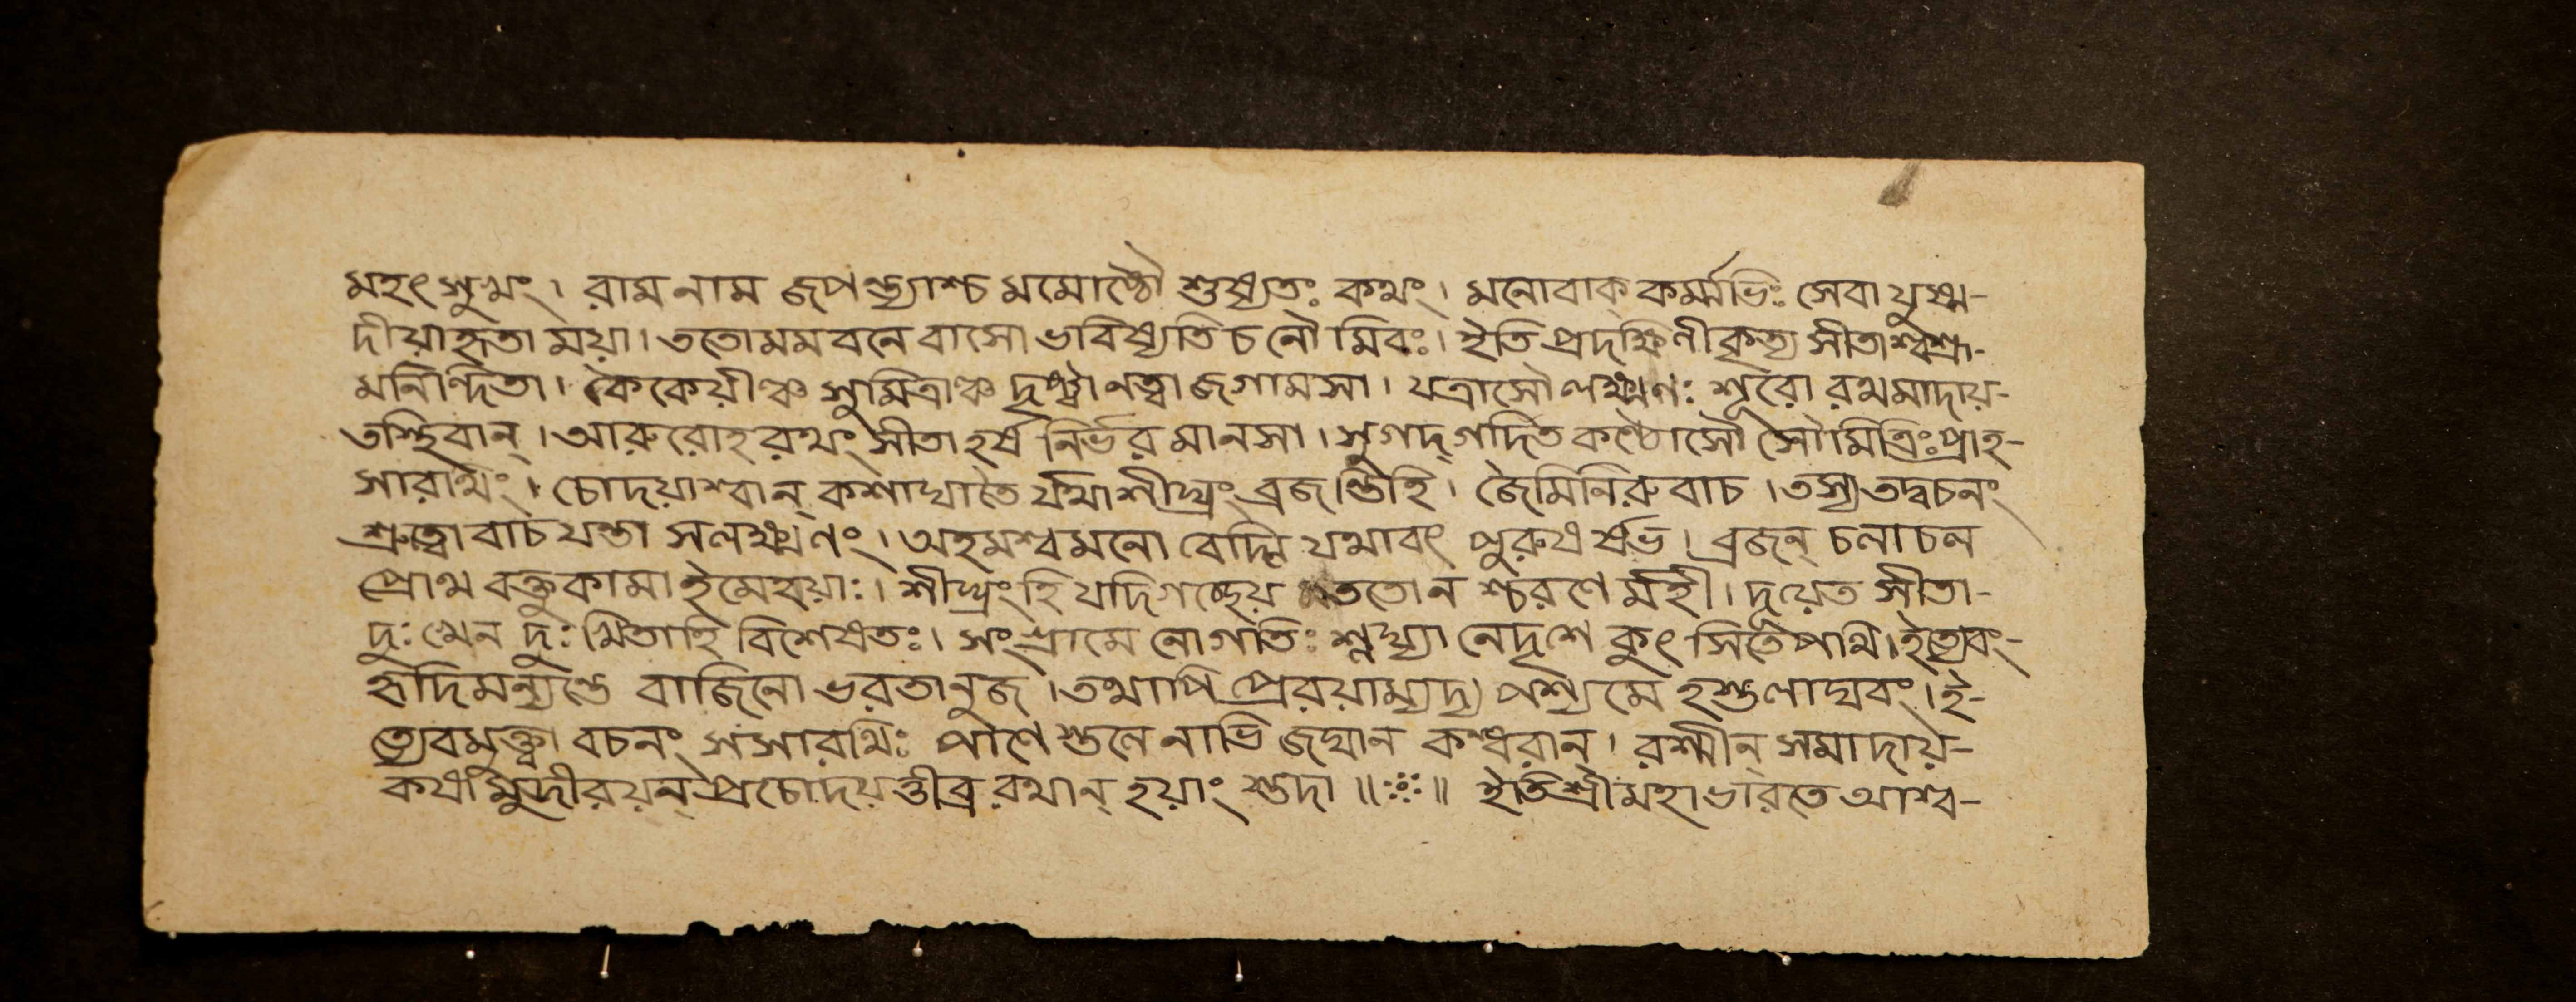 মহৎ সুখং। রাম নাম জপন্ত্যাশ্চ মমোষ্ঠৌ শুষ্যতঃ কথং। মনোবাক্ কর্ম্মভিঃ সেবা যুষ্ম-
দীয়াহৃতা ময়া। ততোমম বনে বাসো ভবিষ্যতি চ নৌমিবঃ। ইতি প্রদক্ষিণীকৃত্য সীতাশ্বশ্রূ-
মনিন্দিতা। কৈকেয়ীঞ্চ সুমিত্রাঞ্চ দৃষ্ট্বা নত্বা জগাম সা। যত্রাসৌ লক্ষ্মণঃ শূরো রথমাদায়-
তস্থিবান্। আরুরোহ রথং সীতা হর্ষ নির্ভর মানসা। সুগদ্গর্দিত কণ্ঠোসৌ সৌমিত্রিঃ প্রাহ-
সারথিং। চোদয়াশ্বান্ কশাঘাতৈ র্যথাশীঘ্রং ব্রজন্তিহি। জৈমিনিরুবাচ। তস্য তদ্বচনং
শ্রুত্বোবাচ যন্তা সলক্ষ্মণং। অহমশ্বমনো বেদ্মি যথাবৎ পুরুষর্ষভ। ব্রজন্ চলাচল
প্রোথ বক্তুকামা ইমে হয়াঃ। শীঘ্রংহি যদি গচ্ছেয় ততোন শ্চরণে র্মহী। দূয়েত সীতা-
দুঃখেন দুঃখিতাহি বিশেষতঃ। সংগ্রামে নো গতিঃ শ্লাঘ্যা নেদৃশে কুৎসিতে পথি। ইত্যেবং-
হৃদিমন্যন্তে বাজিনো ভরতানুজ। তথাপি প্রেরয়াম্যদ্য পশ্য মে হস্তলাঘবং। ই-
ত্যেবমুক্ত্বা বচনং সসারথিঃ পাণৌ স্তনেনাভি জঘান কন্ধরান্। রশ্মীন্ সমাদায়-
কথামুদীরয়ন্ প্রচোদয়ত্তীব্র রথান্ হয়াং স্তদা॥ ॥ ইতি শ্রীমহাভারতে আশ্ব-